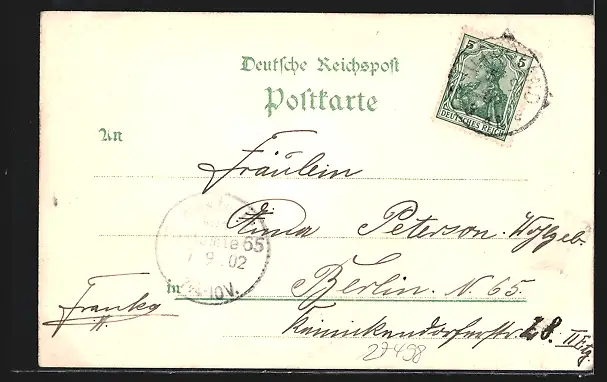 Deutsche Reichspost
Postkarte
5 5
DEUTSCHES REICH
An
Fräulein
Anna Peterson. Wohlgeb.
65
9 02
in Berlin. N. 65.
Franko
Reinickendorferstr. 28. II Etg.
27498